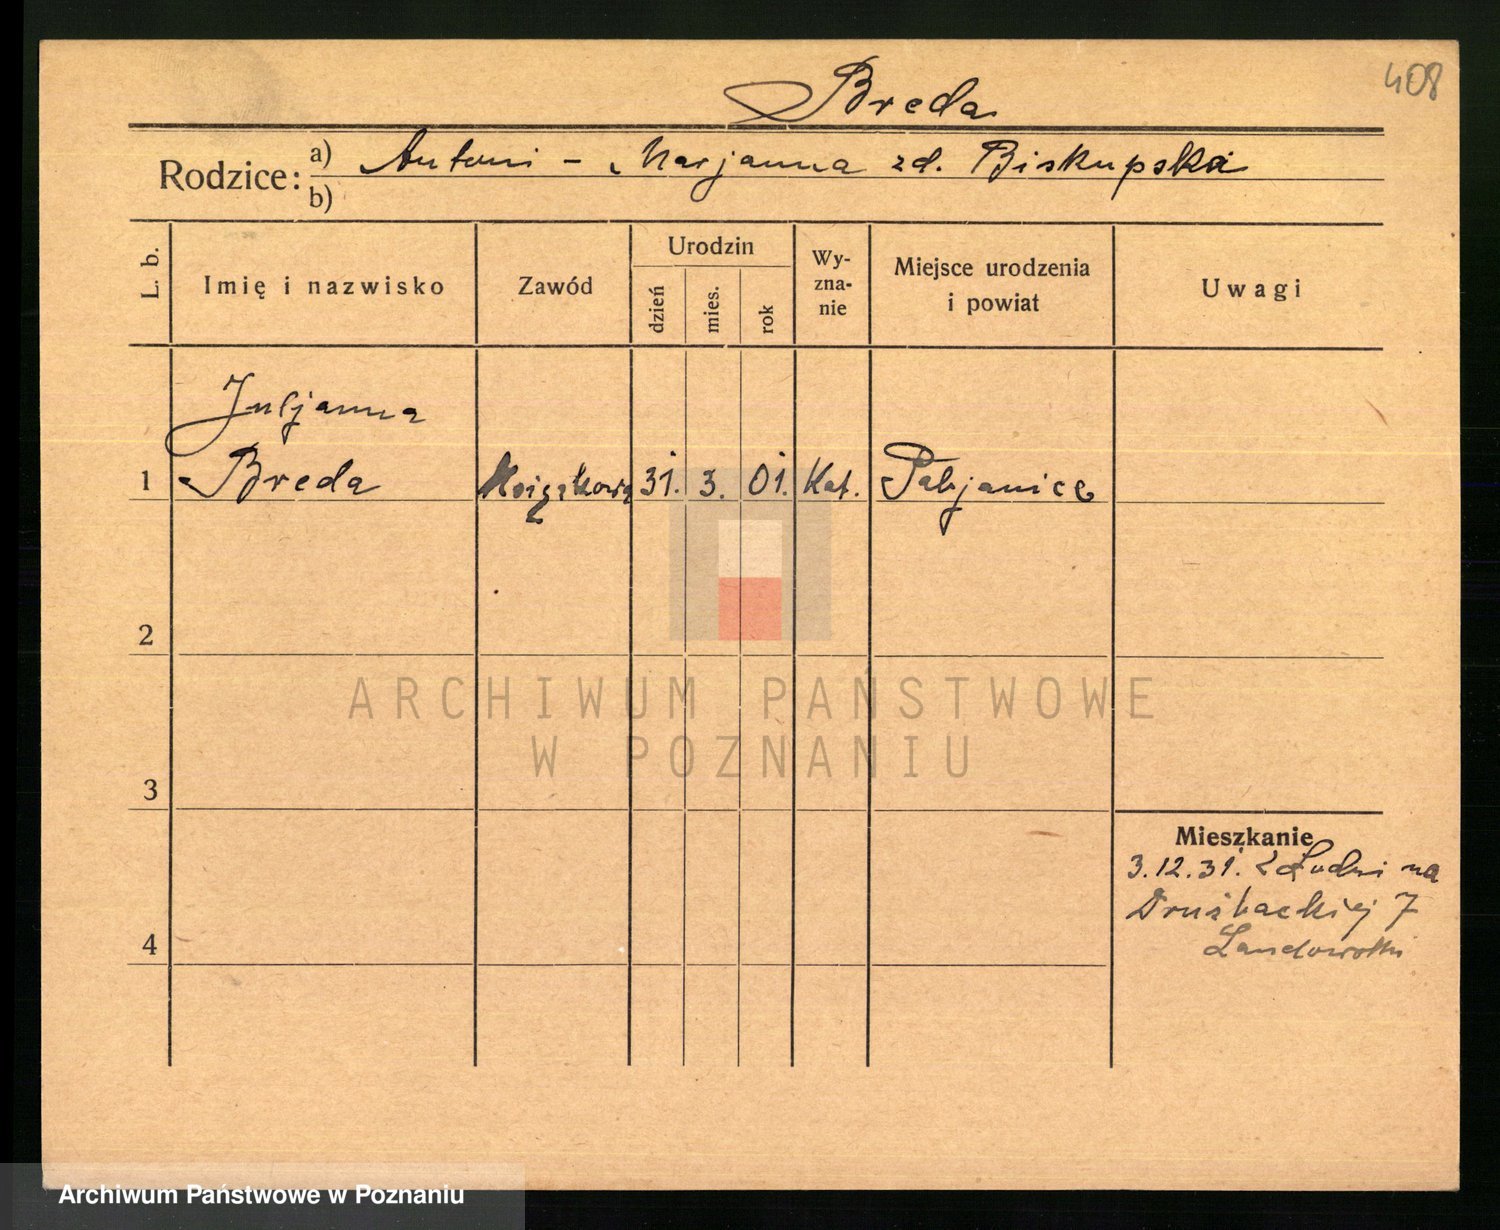 408
Breda
Rodzice: a) Antoni - Marjanna zd. Biskupska
b)
L. b. Imię i nazwisko Zawód Urodzin dzień mies. rok Wy-zna-nie Miejsce urodzenia i powiat Uwagi
Juljanna
1 Breda Książkowa 31. 3. 01. Kat. Pabjanice
2
3
4
Mieszkanie
3.12.31. z Łodzi na
Drużbackiej 7
ARCHIWUM PAŃSTWOWE
W POZNANIU
Archiwum Państwowe w Poznaniu